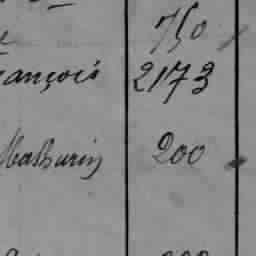 750
ançois 2173
Mathurin 200